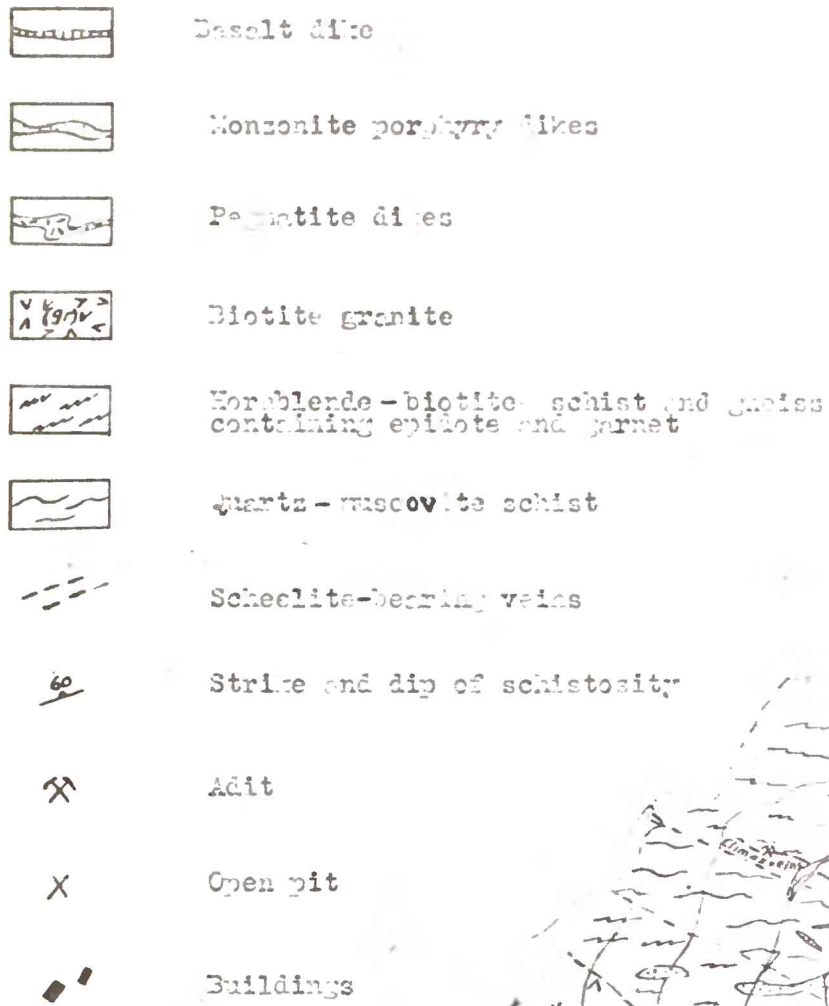 Basalt dike
Monzonite porphyry dikes
Pegmatite dikes
(gr)
Biotite granite
Hornblende-biotite schist and gneiss
containing epidote and garnet
Quartz-muscovite schist
Scheelite-bearing veins
60
Strike and dip of schistosity
Adit
Climax vein
Open pit
Buildings